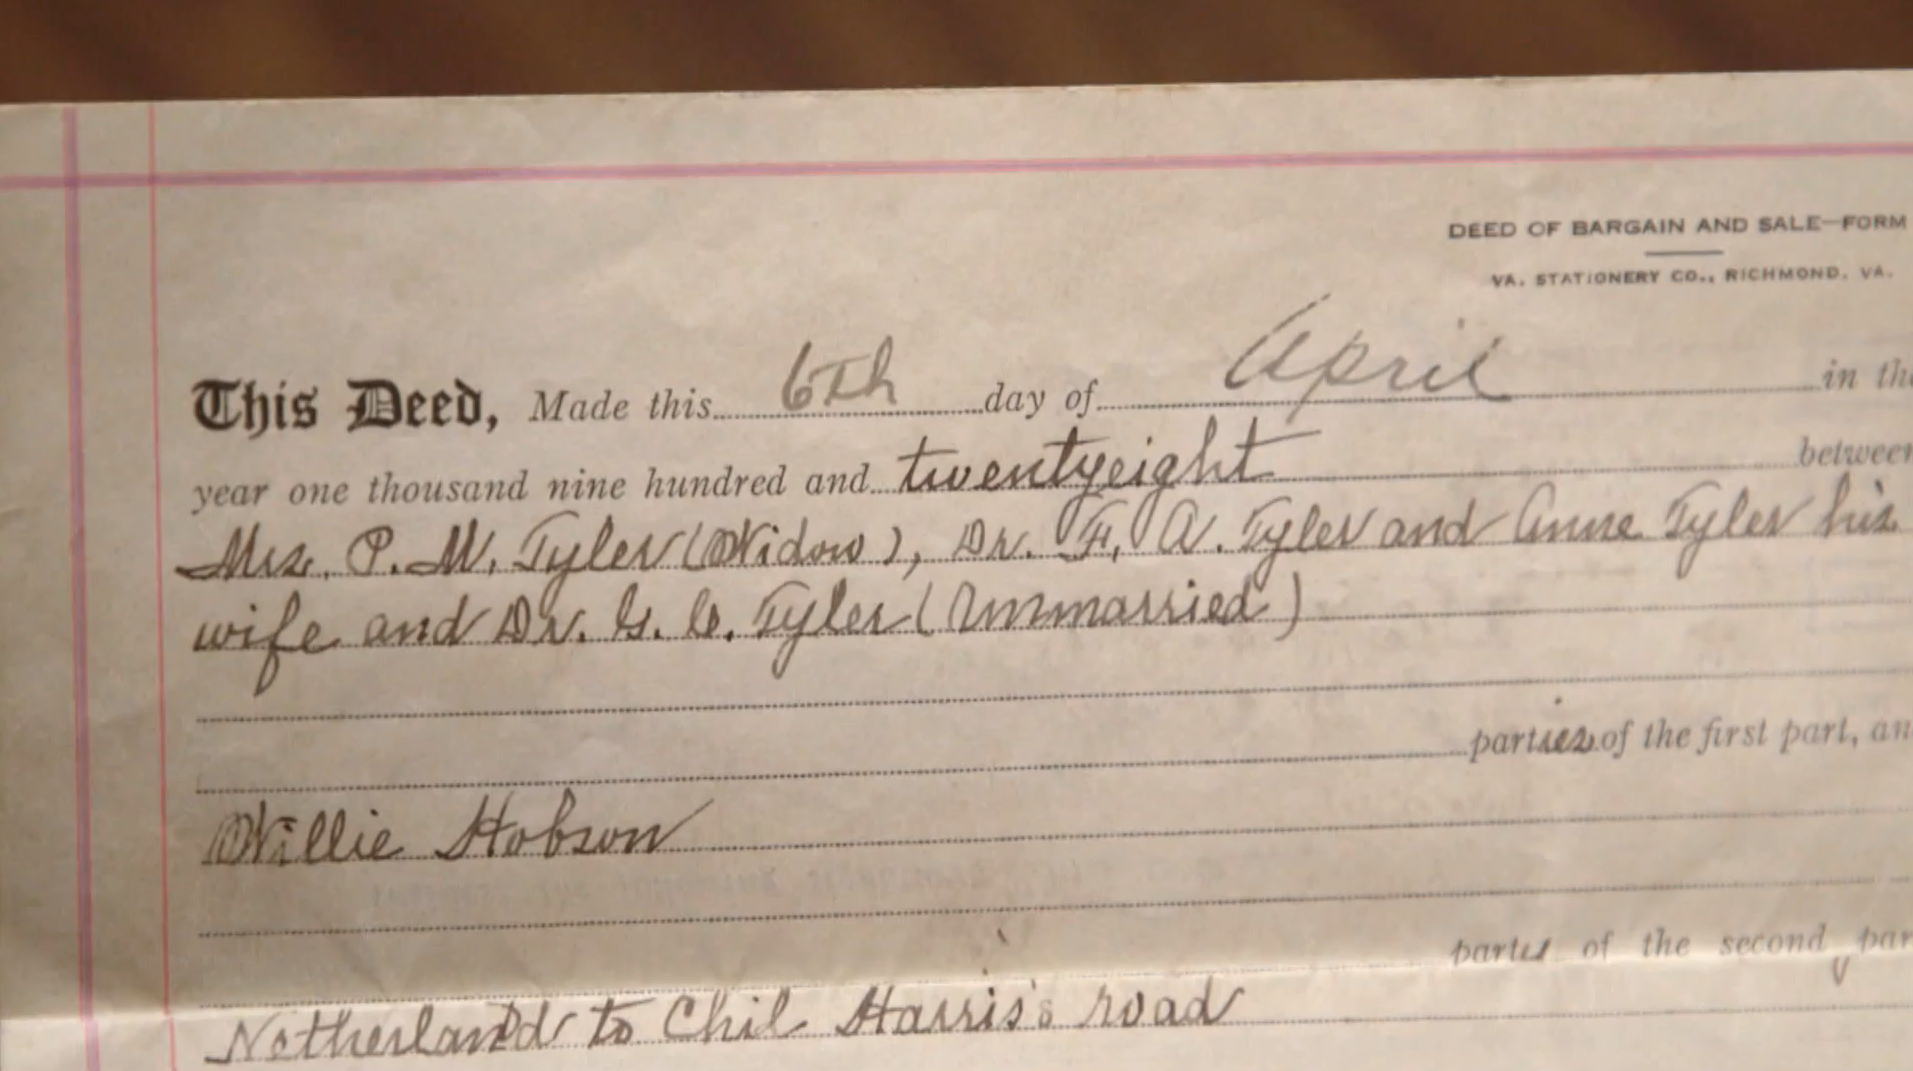 DEED OF BARGAIN AND SALE—FORM
VA. STATIONERY CO., RICHMOND, VA.
This Deed, Made this 6th day of April in the
year one thousand nine hundred and twentyeight between
Mrs. P. M. Tyler (Widow), Dr. F. A. Tyler and Anne Tyler his
wife and Dr. G. C. Tyler (Unmarried)
parties of the first part, an
Willie Hobson
of the second par
Netherland to Chil Harris's road